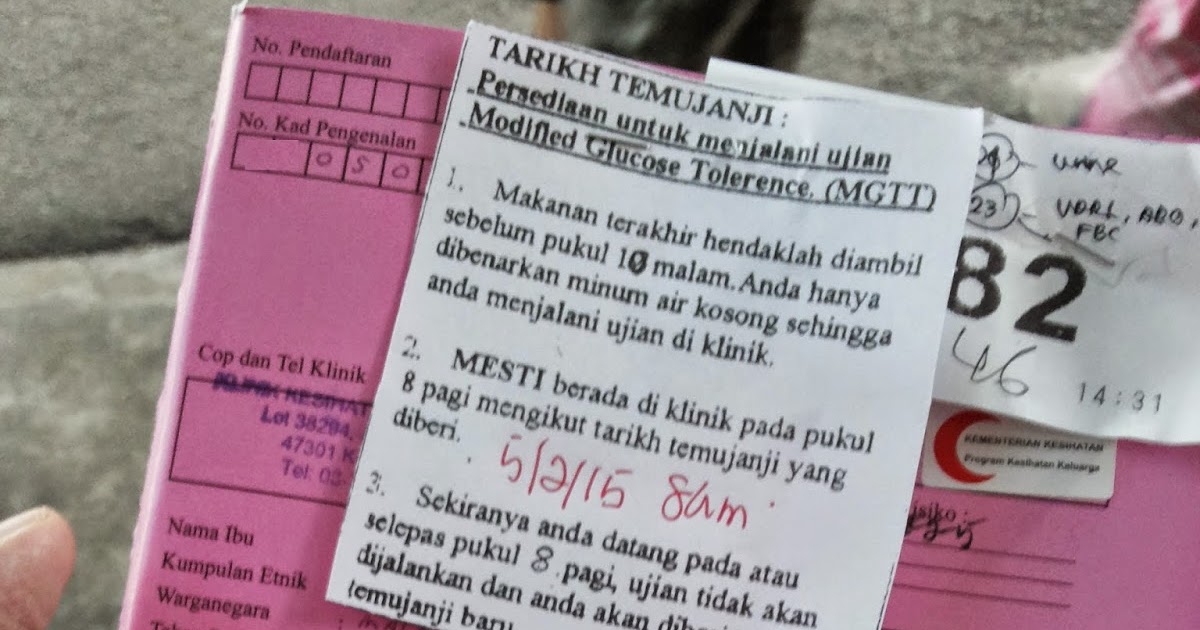 No. Pendaftaran
No. Kad Pengenalan
0 5 0
Cop dan Tel Klinik
KLINIK KESIHAT
Lot 38294,
47301 K
Tel: 03-
Nama Ibu
Kumpulan Etnik
Warganegara
TARIKH TEMUJANJI :
Persediaan untuk menjalani ujian
Modified Glucose Tolerence. (MGTT)
1. Makanan terakhir hendaklah diambil
sebelum pukul 10 malam. Anda hanya
dibenarkan minum air kosong sehingga
anda menjalani ujian di klinik.
2. MESTI berada di klinik pada pukul
8 pagi mengikut tarikh temujanji yang
diberi.
5/2/15 8am
3. Sekiranya anda datang pada atau
selepas pukul 8 pagi, ujian tidak akan
dijalankan dan anda akan diberi
temujanji baru
urine
23 - VDRL, ABO,
FBC
82
46
14:31
KEMENTERIAN KESIHATAN
Program Kesihatan Keluarga
isiko :